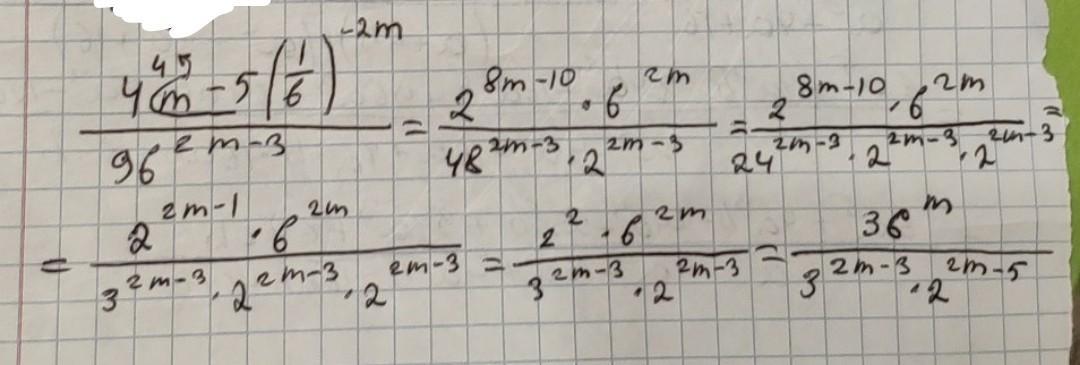 4^{4m-5} (1/6)^{-2m} / 96^{2m-3} = 2^{8m-10} · 6^{2m} / 48^{2m-3} · 2^{2m-3} = 2^{8m-10} · 6^{2m} / 24^{2m-3} · 2^{2m-3} · 2^{2m-3} =
= 2^{2m-1} · 6^{2m} / 3^{2m-3} · 2^{2m-3} · 2^{2m-3} = 2^2 · 6^{2m} / 3^{2m-3} · 2^{2m-3} = 36^m / 3^{2m-3} · 2^{2m-5}